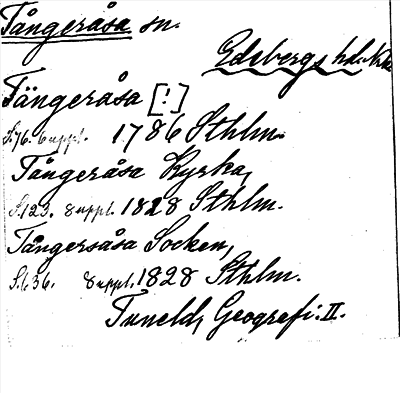 Tångeråsa sn.
Edsbergs hd. Nke
Tängeråsa [!]
S. 76. 6 uppl. 1786 Sthlm.
Tångeråsa Kyrka,
S. 123. 8 uppl. 1828 Sthlm.
Tångersåsa Socken,
S. 636. 8 uppl. 1828 Sthlm.
Tuneld, Geografi: II.